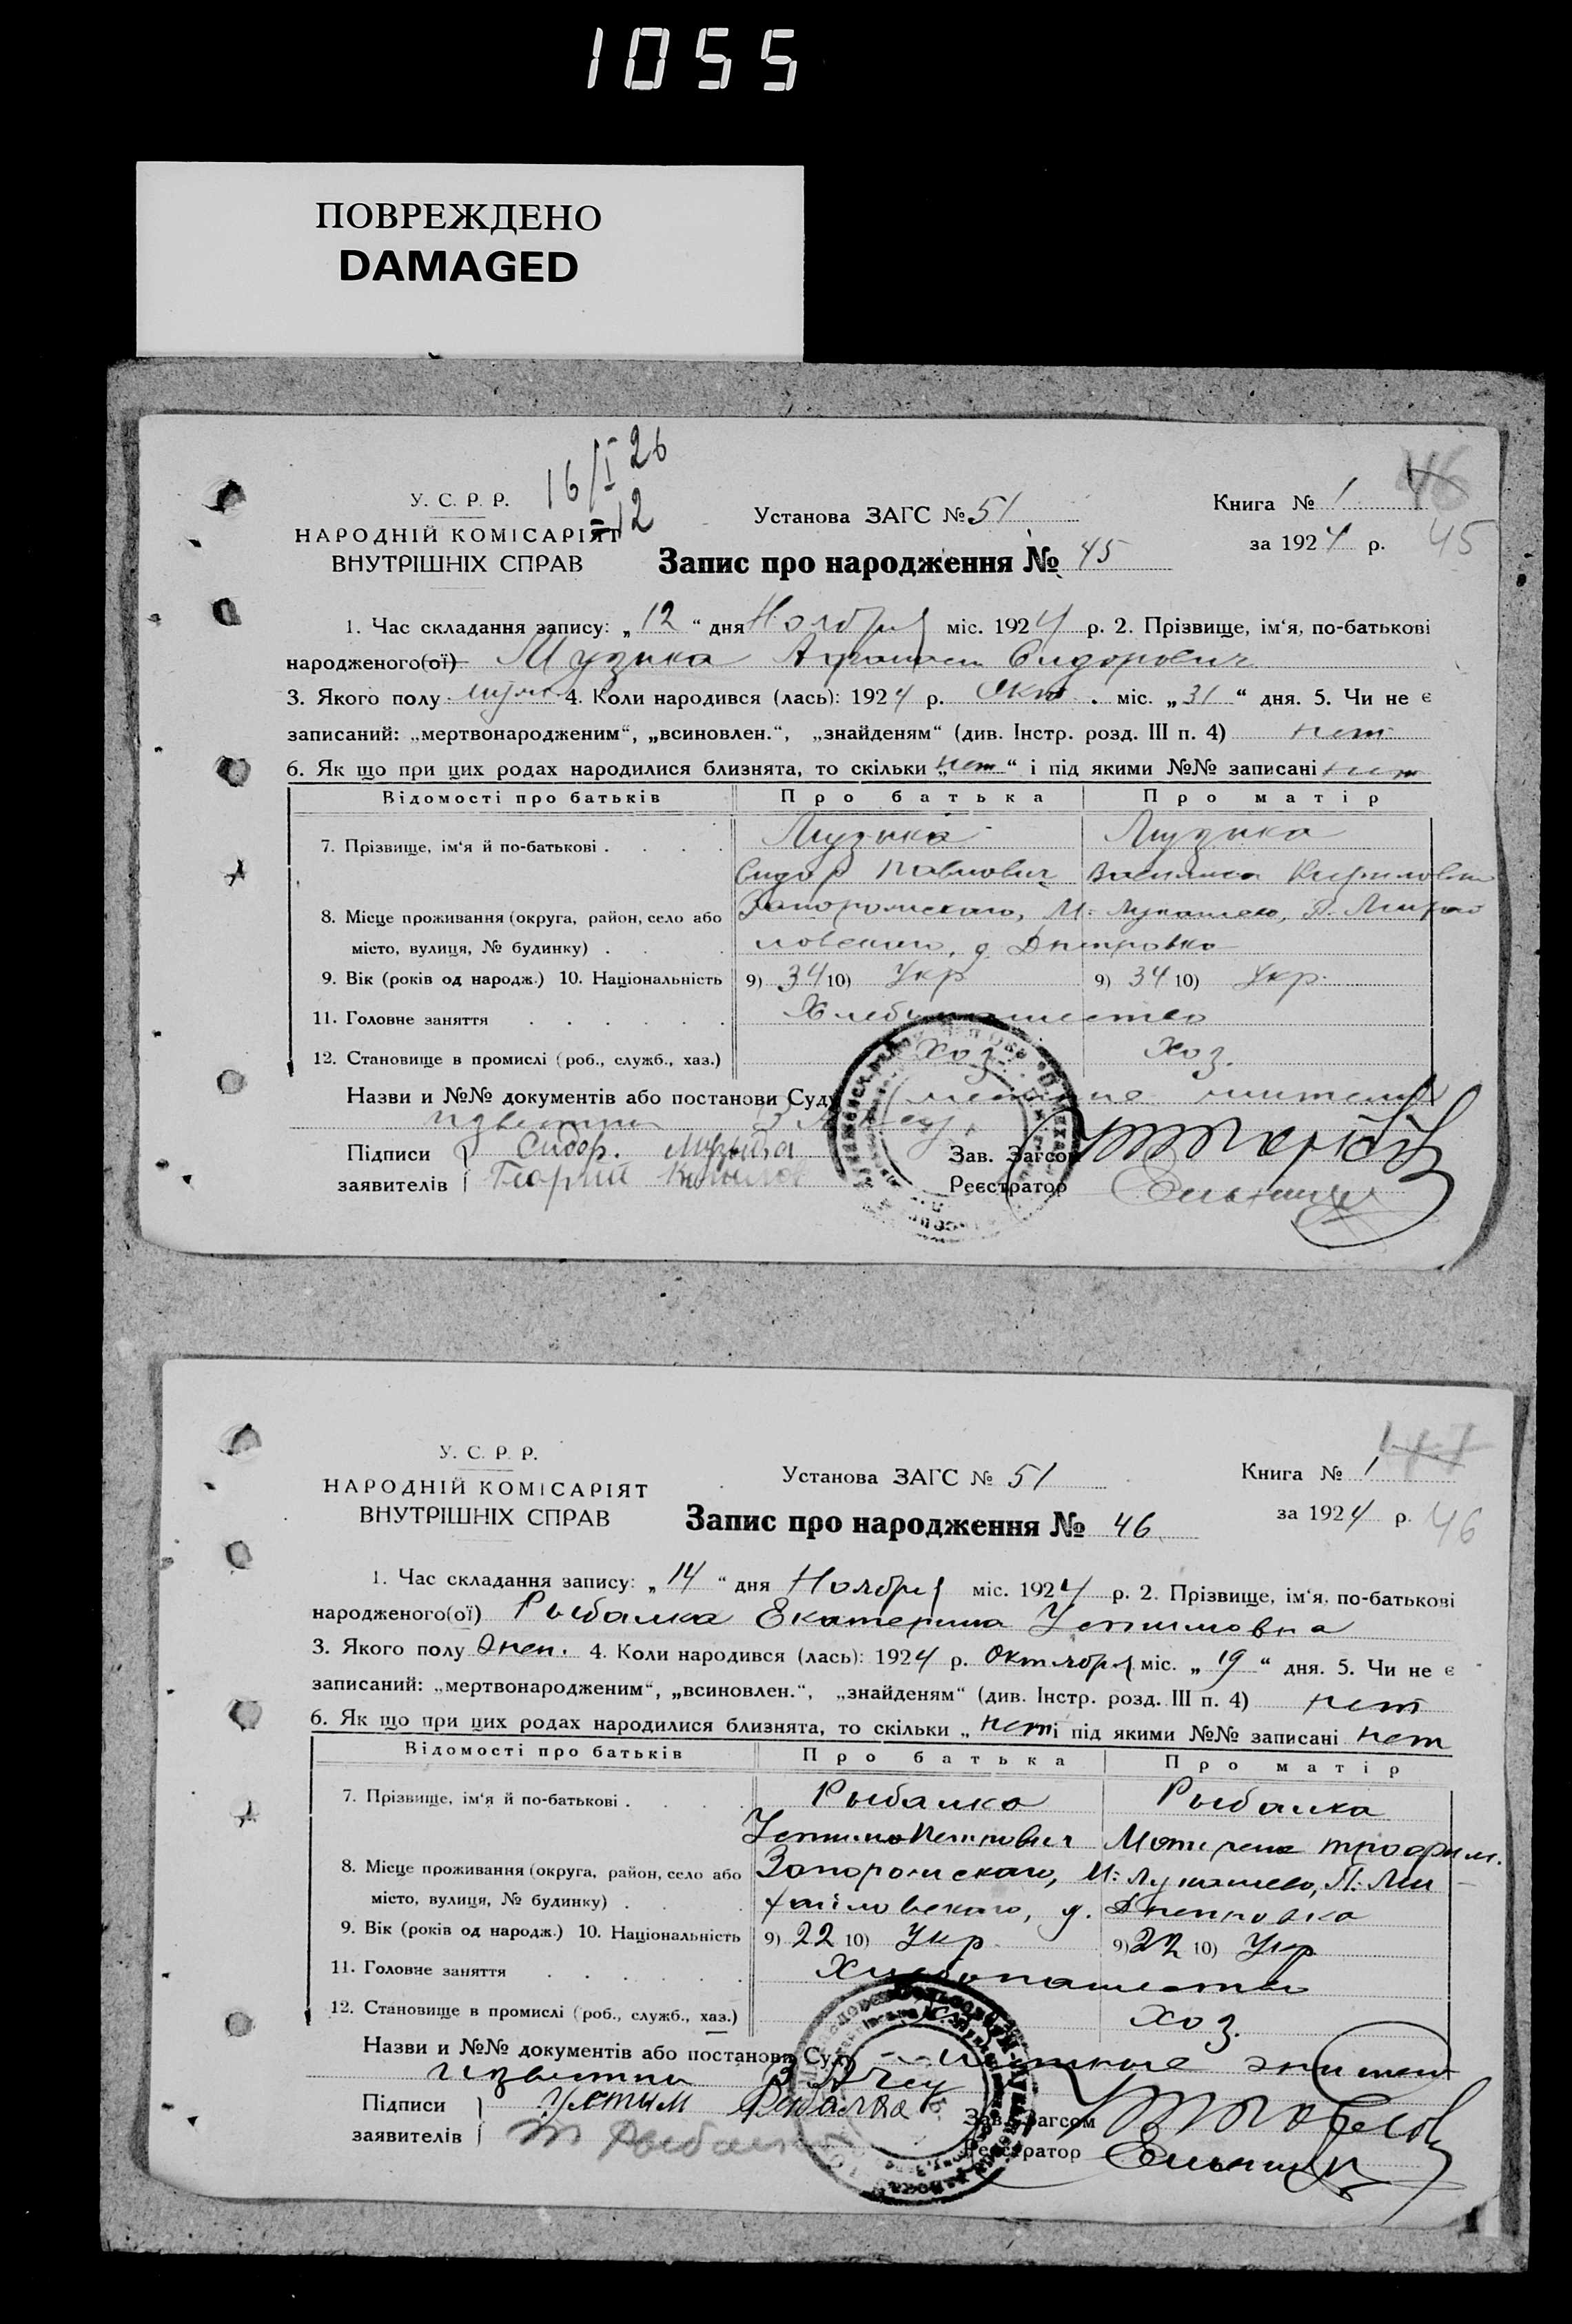 1055
ПОВРЕЖДЕНО
DAMAGED
16/I 26
12
46
У. С. Р. Р.
НАРОДНІЙ КОМІСАРІЯТ
ВНУТРІШНІХ СПРАВ
Установа ЗАГС № 51
Книга № 1
за 1924 р. 45
Запис про народження № 45
1. Час складання запису: „12“ дня Ноября міс. 1924 р. 2. Прізвище, ім‘я, по-батькові
народженого(ої) Музыка Афанасий Сидорович
3. Якого полу муж. 4. Коли народився (лась): 1924 р. Окт. міс. „31“ дня. 5. Чи не є
записаний: „мертвонародженим“, „всиновлен.“, „знайденям“ (див. Інстр. розд. III п. 4) нет
6. Як що при цих родах народилися близнята, то скільки „нет“ і під якими №№ записані нет
Відомості про батьків Про батька Про матір
7. Прізвище, ім‘я й по-батькові . . . . Музыка Музыка
Сидор Павлович Василиса Кирилловна
8. Місце проживання (округа, район, село або Запорожского, М-Лукашево, П. Михай
місто, вулиця, № будинку) . . . ловского, д. Днепровка
9. Вік (років од народж.) 10. Національність 9) 34 10) Укр 9) 34 10) Укр.
11. Головне заняття . . . . . . Хлебопашество
12. Становище в промислі (роб., служб., хаз.) Хоз. Хоз.
Назви и №№ документів або постанови Суду местные жители
известны ЗАГСу
Підписи Сидор. Музыка Зав. Загсом
заявителів Георгий Реєстратор
47
У. С. Р. Р.
НАРОДНІЙ КОМІСАРІЯТ
ВНУТРІШНІХ СПРАВ
Установа ЗАГС № 51
Книга № 1
за 1924 р. 46
Запис про народження № 46
1. Час складання запису: „14“ дня Ноября міс. 1924 р. 2. Прізвище, ім‘я, по-батькові
народженого(ої) Рыбалка Екатерина Устимовна
3. Якого полу жен. 4. Коли народився (лась): 1924 р. Октября міс. „19“ дня. 5. Чи не є
записаний: „мертвонародженим“, „всиновлен.“, „знайденям“ (див. Інстр. розд. III п. 4) нет
6. Як що при цих родах народилися близнята, то скільки „нет і під якими №№ записані нет
Відомості про батьків Про батька Про матір
7. Прізвище, ім‘я й по-батькові . . . . Рыбалка Рыбалка
Устим Петрович Мотрена Трофим.
8. Місце проживання (округа, район, село або Запорожского, М-Лукашево, П. Ми
місто, вулиця, № будинку) . . . хайловского, д. Днепровка
9. Вік (років од народж.) 10. Національність 9) 22 10) Укр. 9) 22 10) Укр
11. Головне заняття . . . . . . Хлебопашество
12. Становище в промислі (роб., служб., хаз.) Хоз.
Назви и №№ документів або постанови Суду местные жители
известны ЗАГСу
Підписи Устим Рыбалка Зав. Загсом
заявителів Т Рыбалка Реєстратор